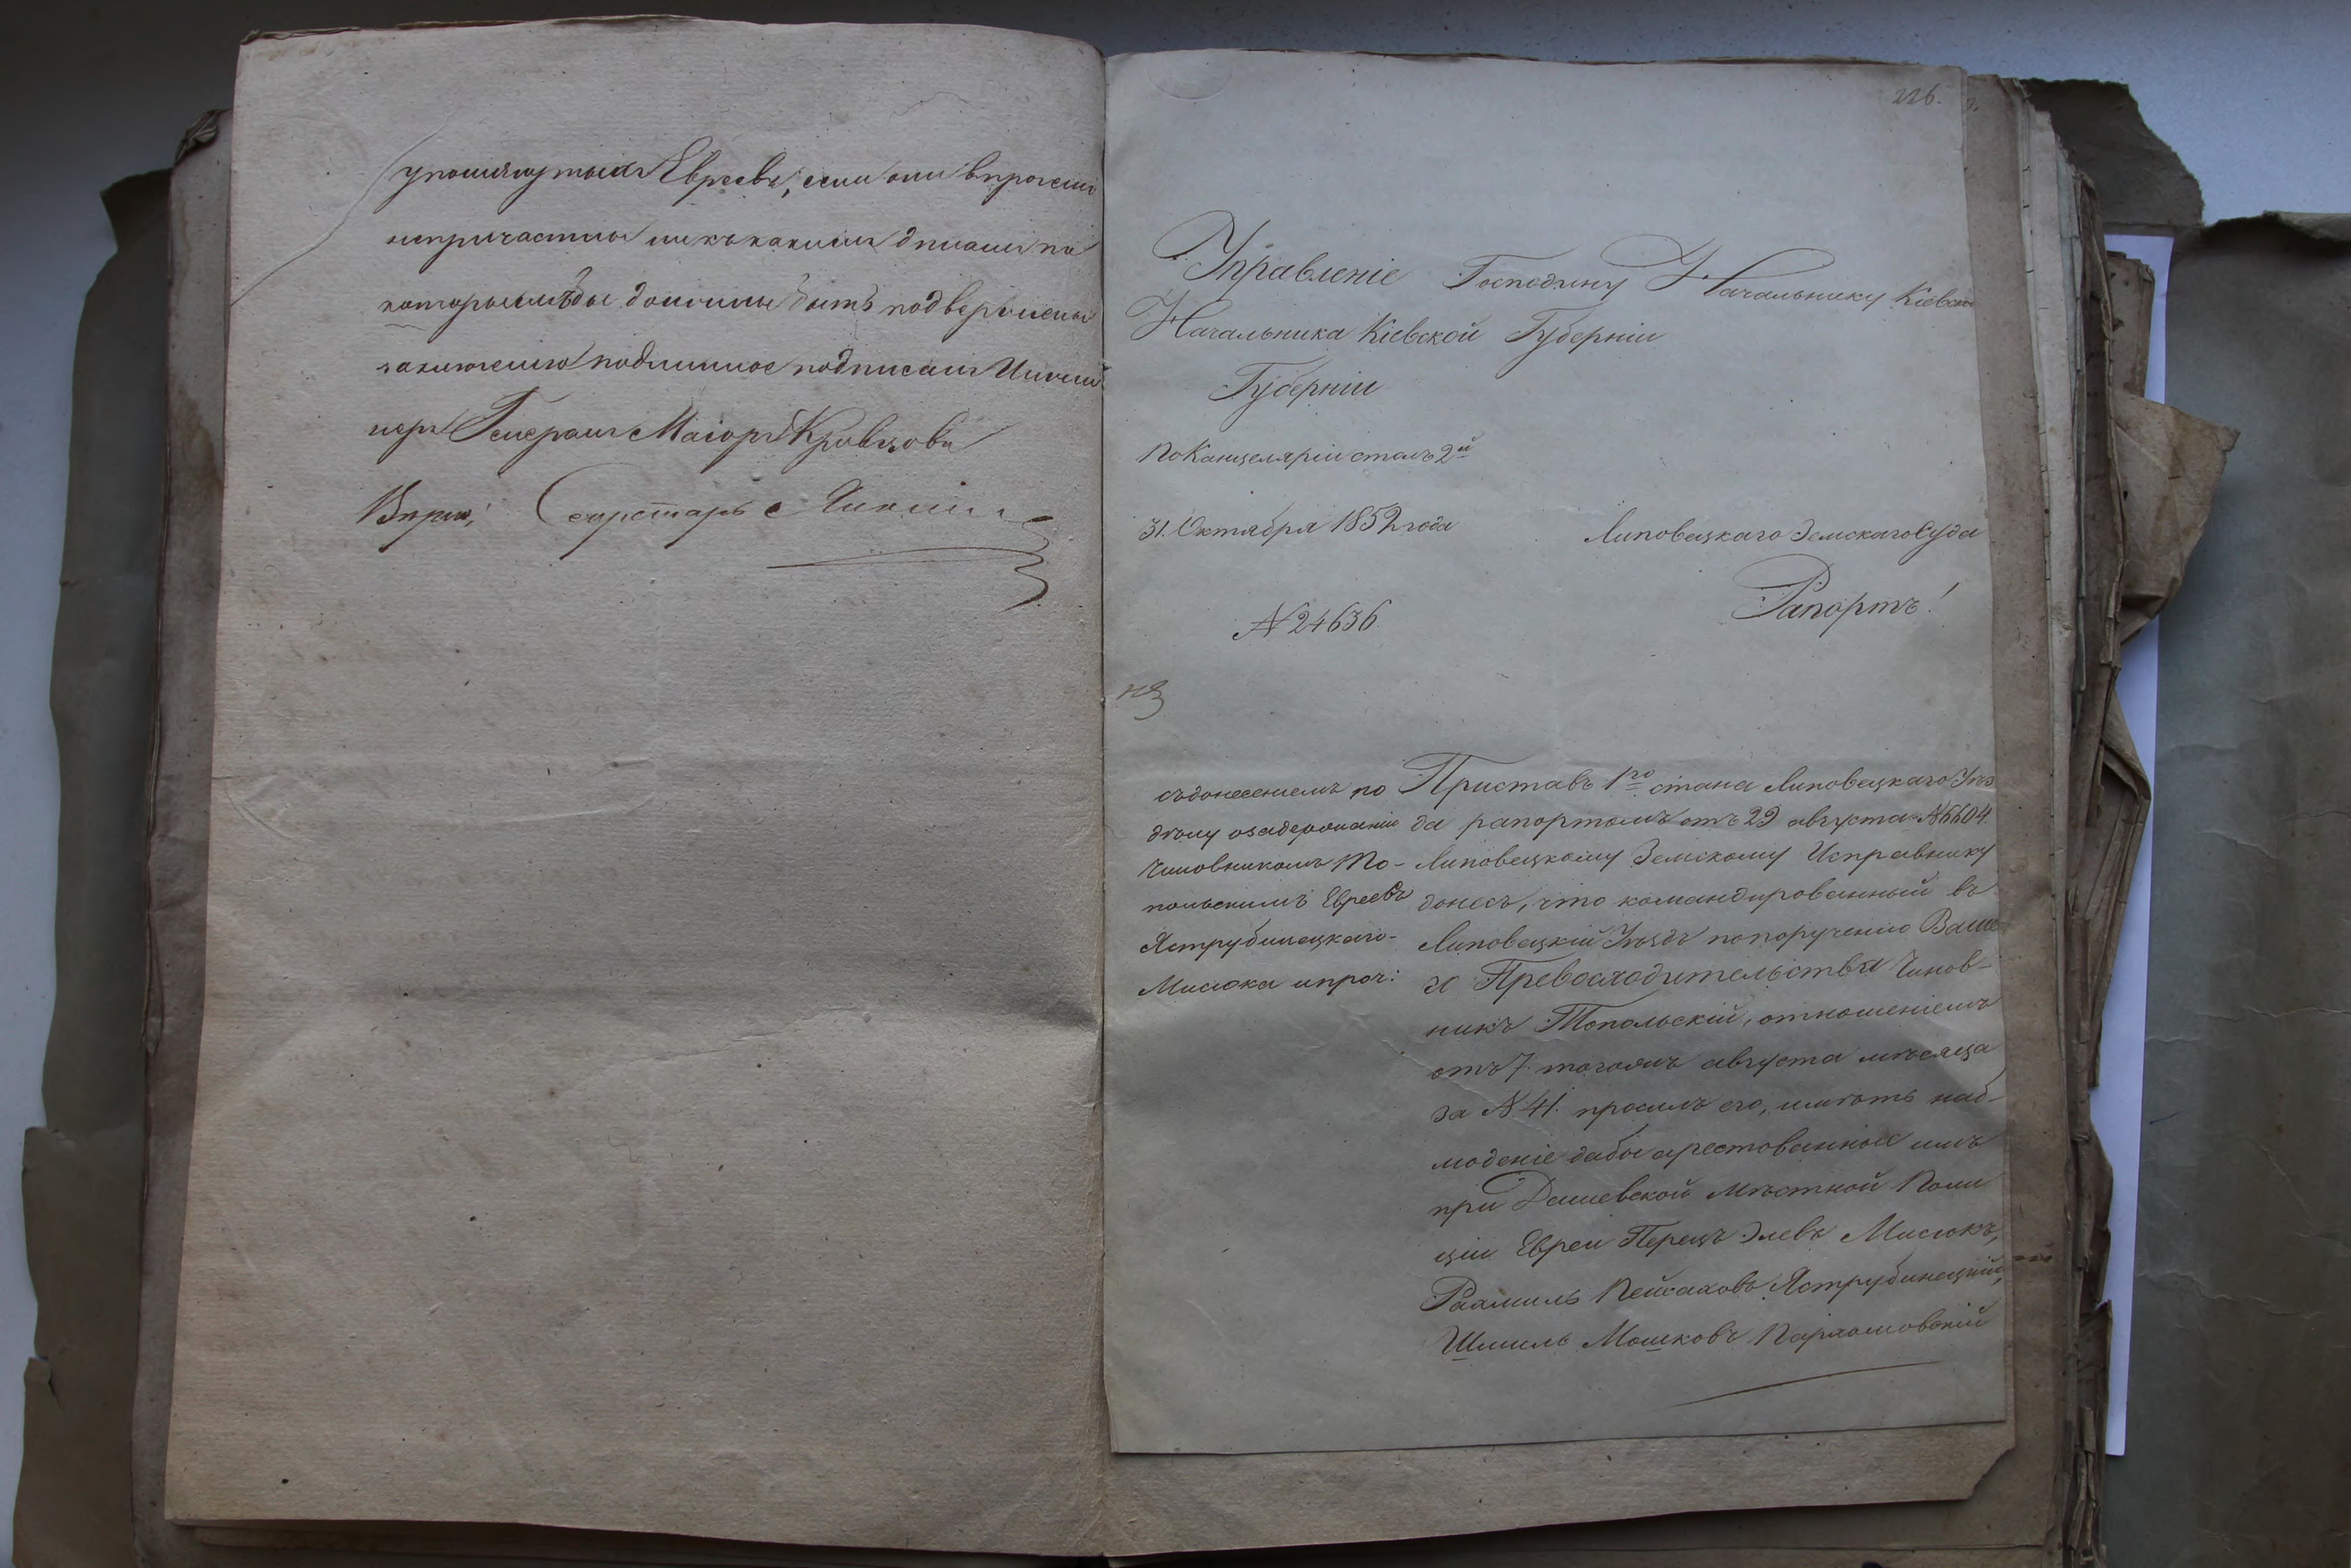 упомянутыхъ Евреевъ, если они впрочемъ
непричастны никъкакимъ дѣламъ по
которымъбы должны быть подвержены
заключенію подлинное подписалъ Инже
неръ Генералъ Маіоръ Кривцовъ
Вѣрно, Секретарь
226.
Управленіе
Начальника Кіевской
Губерніи
По Канцеляріи столъ 2й
31. Октября 1852 года
N 24636.
Господину Начальнику Кіевской
Губерніи
Липовецкаго Земскаго Суда
Рапортъ!
съдонесеніемъ по
дѣлу озадержаніи
Чиновникомъ То-
польскимъ Евреевъ
Яструбинецкаго-
Мисюка ипроч:
Приставъ 1го стана Липовецкаго Уѣз
да рапортомъ отъ 29 августа N6604.
Липовецкому Земскому Исправнику
донесъ, что командированный въ
Липовецкій Уѣздъ попорученію Ваше
го Превосходительства Чинов-
никъ Топольскій, отношеніемъ
отъ 7. тогожъ августа мѣсяца
за N 41. просилъ его, имѣть наб-
люденіе дабы арестованные имъ
при Дашевской Мѣстной Поли
ціи Евреи Перецъ Элевъ Мисюкъ,
Рахмиль Пейсаховъ Яструбинецкій,
Шмиль Мошковъ Пархомовскій